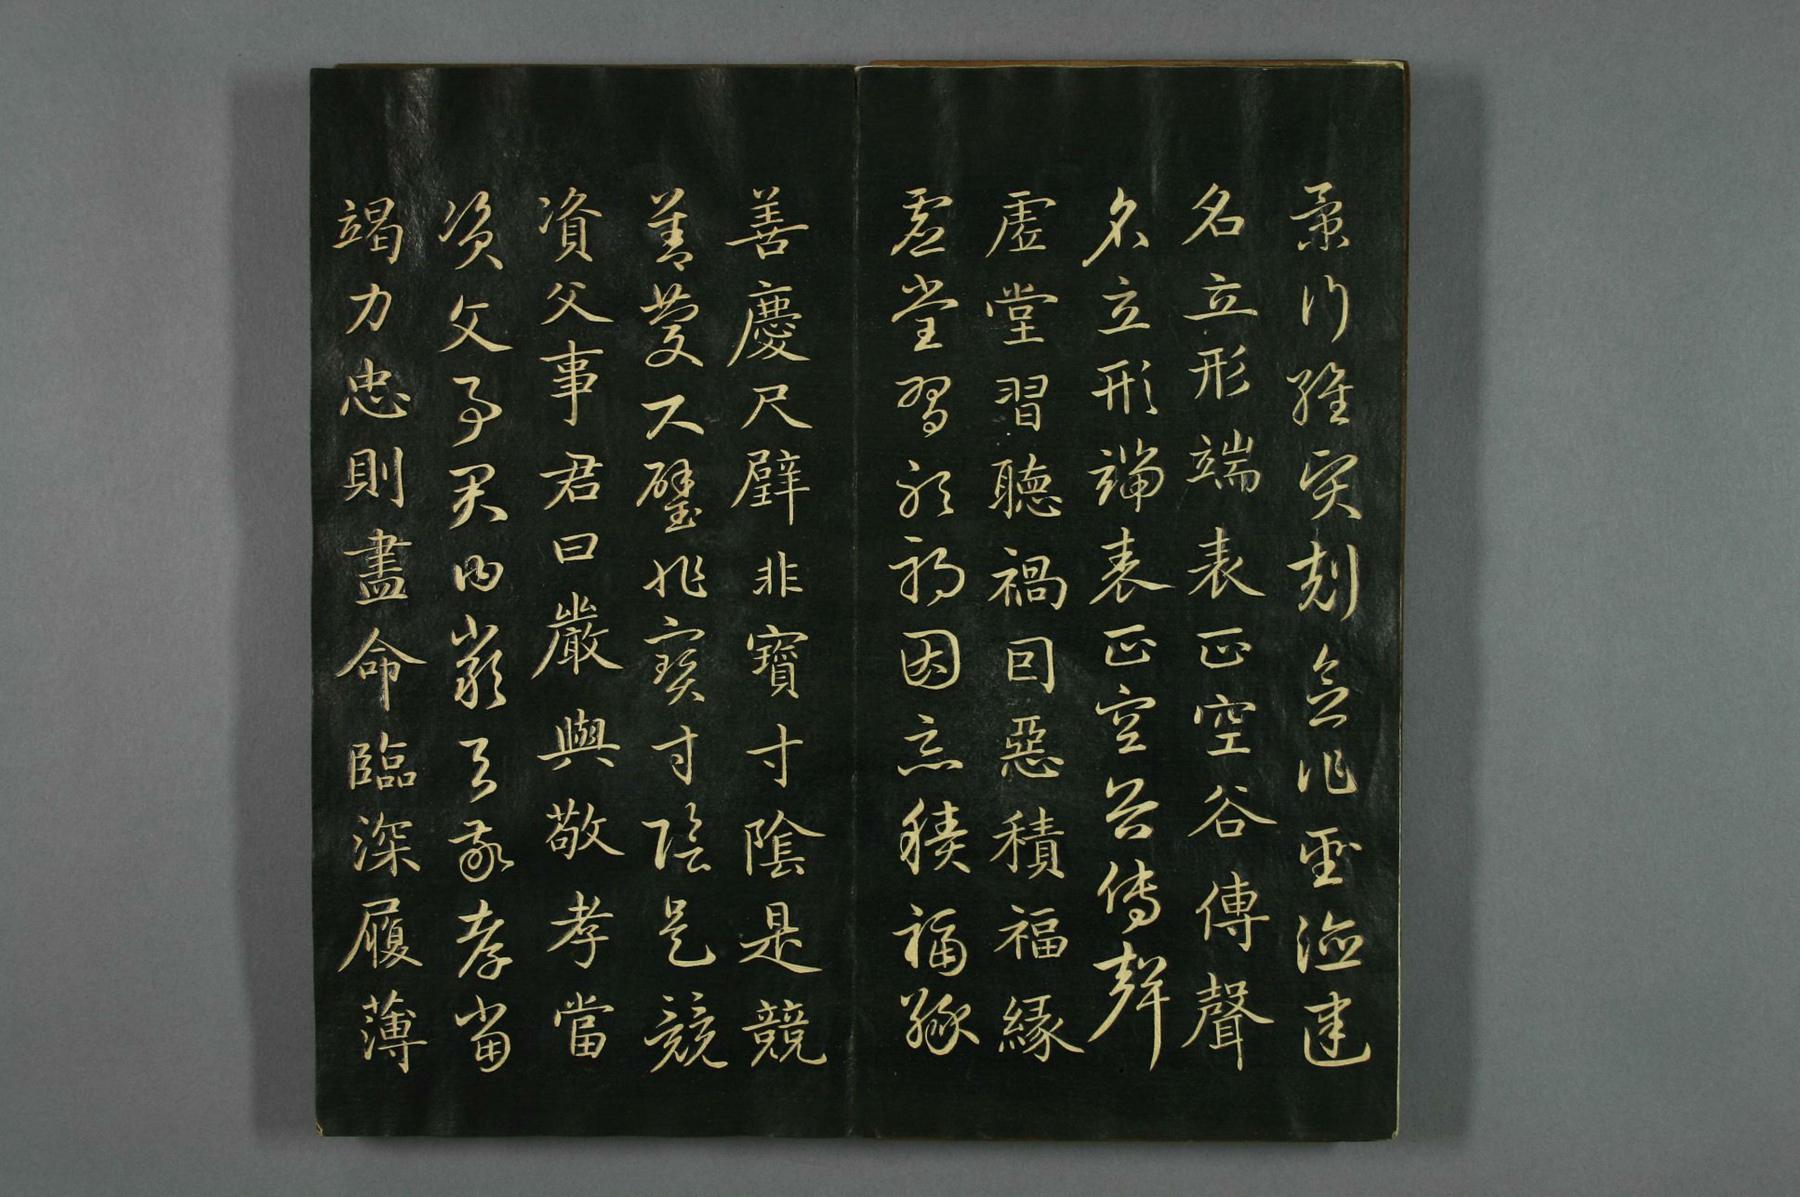 景行維賢剋念作聖德建
名立形端表正空谷傳聲
名立形端表正空谷傳聲
虛堂習聽禍因惡積福緣
虛堂習聽禍因惡積福緣
善慶尺璧非寶寸陰是競
善慶尺璧非寶寸陰是競
資父事君曰嚴與敬孝當
資父事君曰嚴與敬孝當
竭力忠則盡命臨深履薄